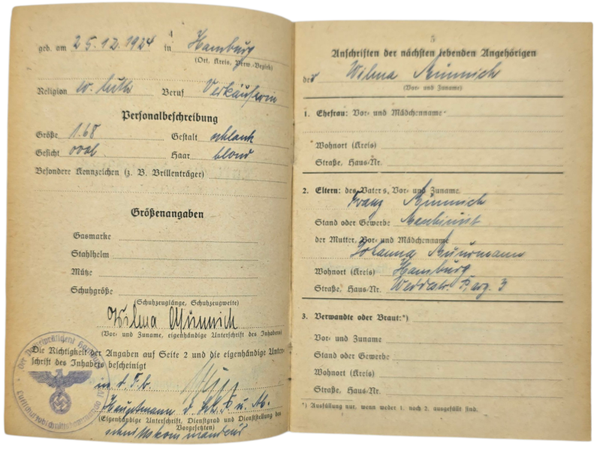 4
geb. am 25.12.1924 in Hamburg
(Ort, Kreis, Verw.-Bezirk)
Religion ev. luth Beruf Verkäuferin
Personalbeschreibung
Größe 1.68 Gestalt schlank
Gesicht oval Haar blond
Besondere Kennzeichen (z. B. Brillenträger)
Größenangaben
Gasmaske
Stahlhelm
Mütze
Schuhgröße
(Schuhzeuglänge, Schuhzeugweite)
Wilma Münnich
(Vor- und Zuname, eigenhändige Unterschrift des Inhabers)
Die Richtigkeit der Angaben auf Seite 2 und die eigenhändige Unter-
schrift des Inhabers bescheinigt
Hauptmann d. u.
(Eigenhändige Unterschrift, Dienstgrad und Dienststellung des
Vorgesetzten)
5
Anschriften der nächsten lebenden Angehörigen
der Wilma Münnich
(Vor- und Zuname)
1. Ehefrau: Vor- und Mädchenname
Wohnort (Kreis)
Straße, Haus-Nr.
2. Eltern: des Vaters, Vor- und Zuname
Franz Münnich
Stand oder Gewerbe
der Mutter, Vor- und Mädchenname
Wohnort (Kreis) Hamburg
Straße, Haus-Nr. 3
3. Verwandte oder Braut:*)
Vor- und Zuname
Stand oder Gewerbe
Wohnort (Kreis)
Straße, Haus-Nr.
*) Ausfüllung nur, wenn weder 1. noch 2. ausgefüllt sind.